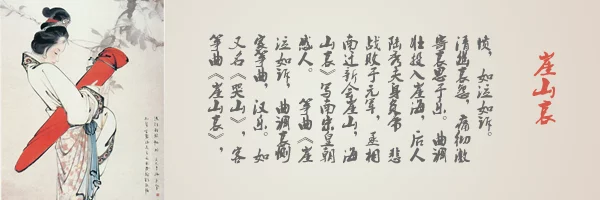 崖山哀
筝曲《崖山哀》，
又名《哭山》，客
家筝曲，汉乐。如
泣如诉，曲调哀恻
感人。 筝曲《崖
山哀》写南宋皇朝
南迁新会崖山，海
战败于元军，丞相
陆秀夫身负帝 悲
壮投入崖海，后人
寄哀思于乐。曲调
清越哀怨，痛彻激
愤，如泣如诉。